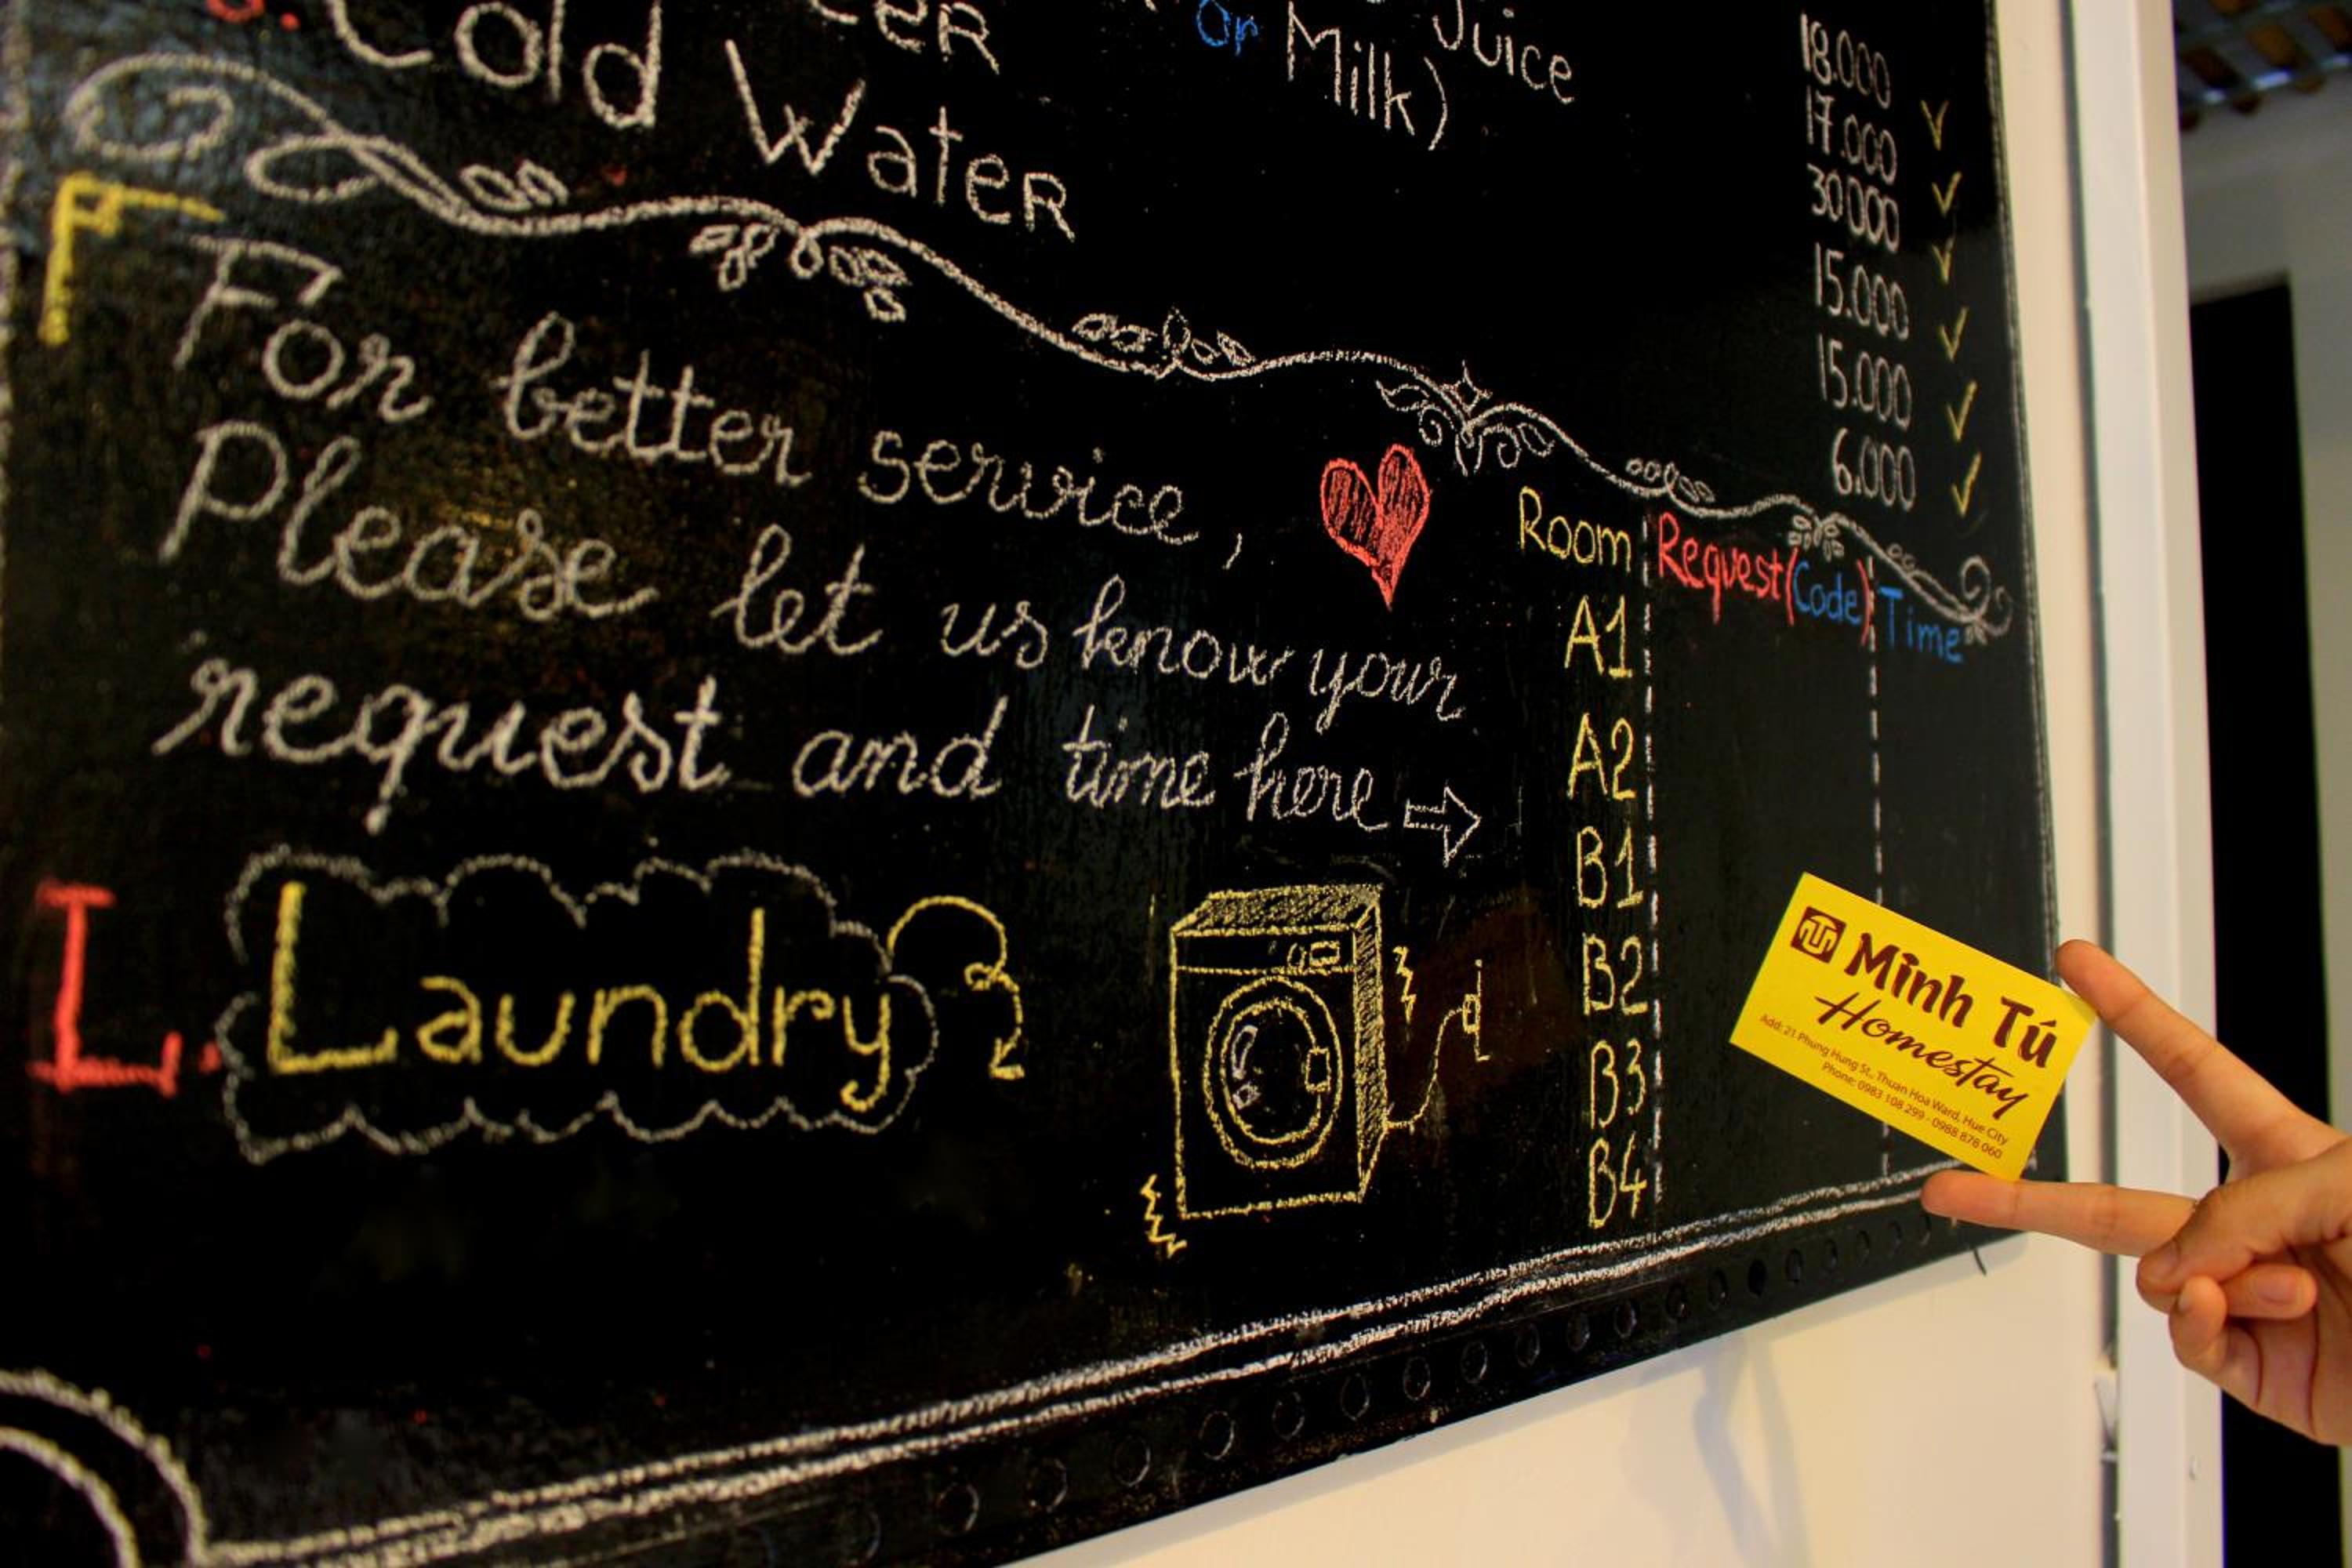 Cold Water
Juice
or Milk)
18.000
17.000
30000
15.000
15.000
6.000
For better service,
Please let us know your
request and time here
Room Request (Code) Time
A1
A2
B1
B2
B3
B4
L. Laundry
Minh Tú
Homestay
Add: 21 Phung Hung St., Thuan Hoa Ward, Hue City
Phone: 0983 108 299 - 0988 878 060